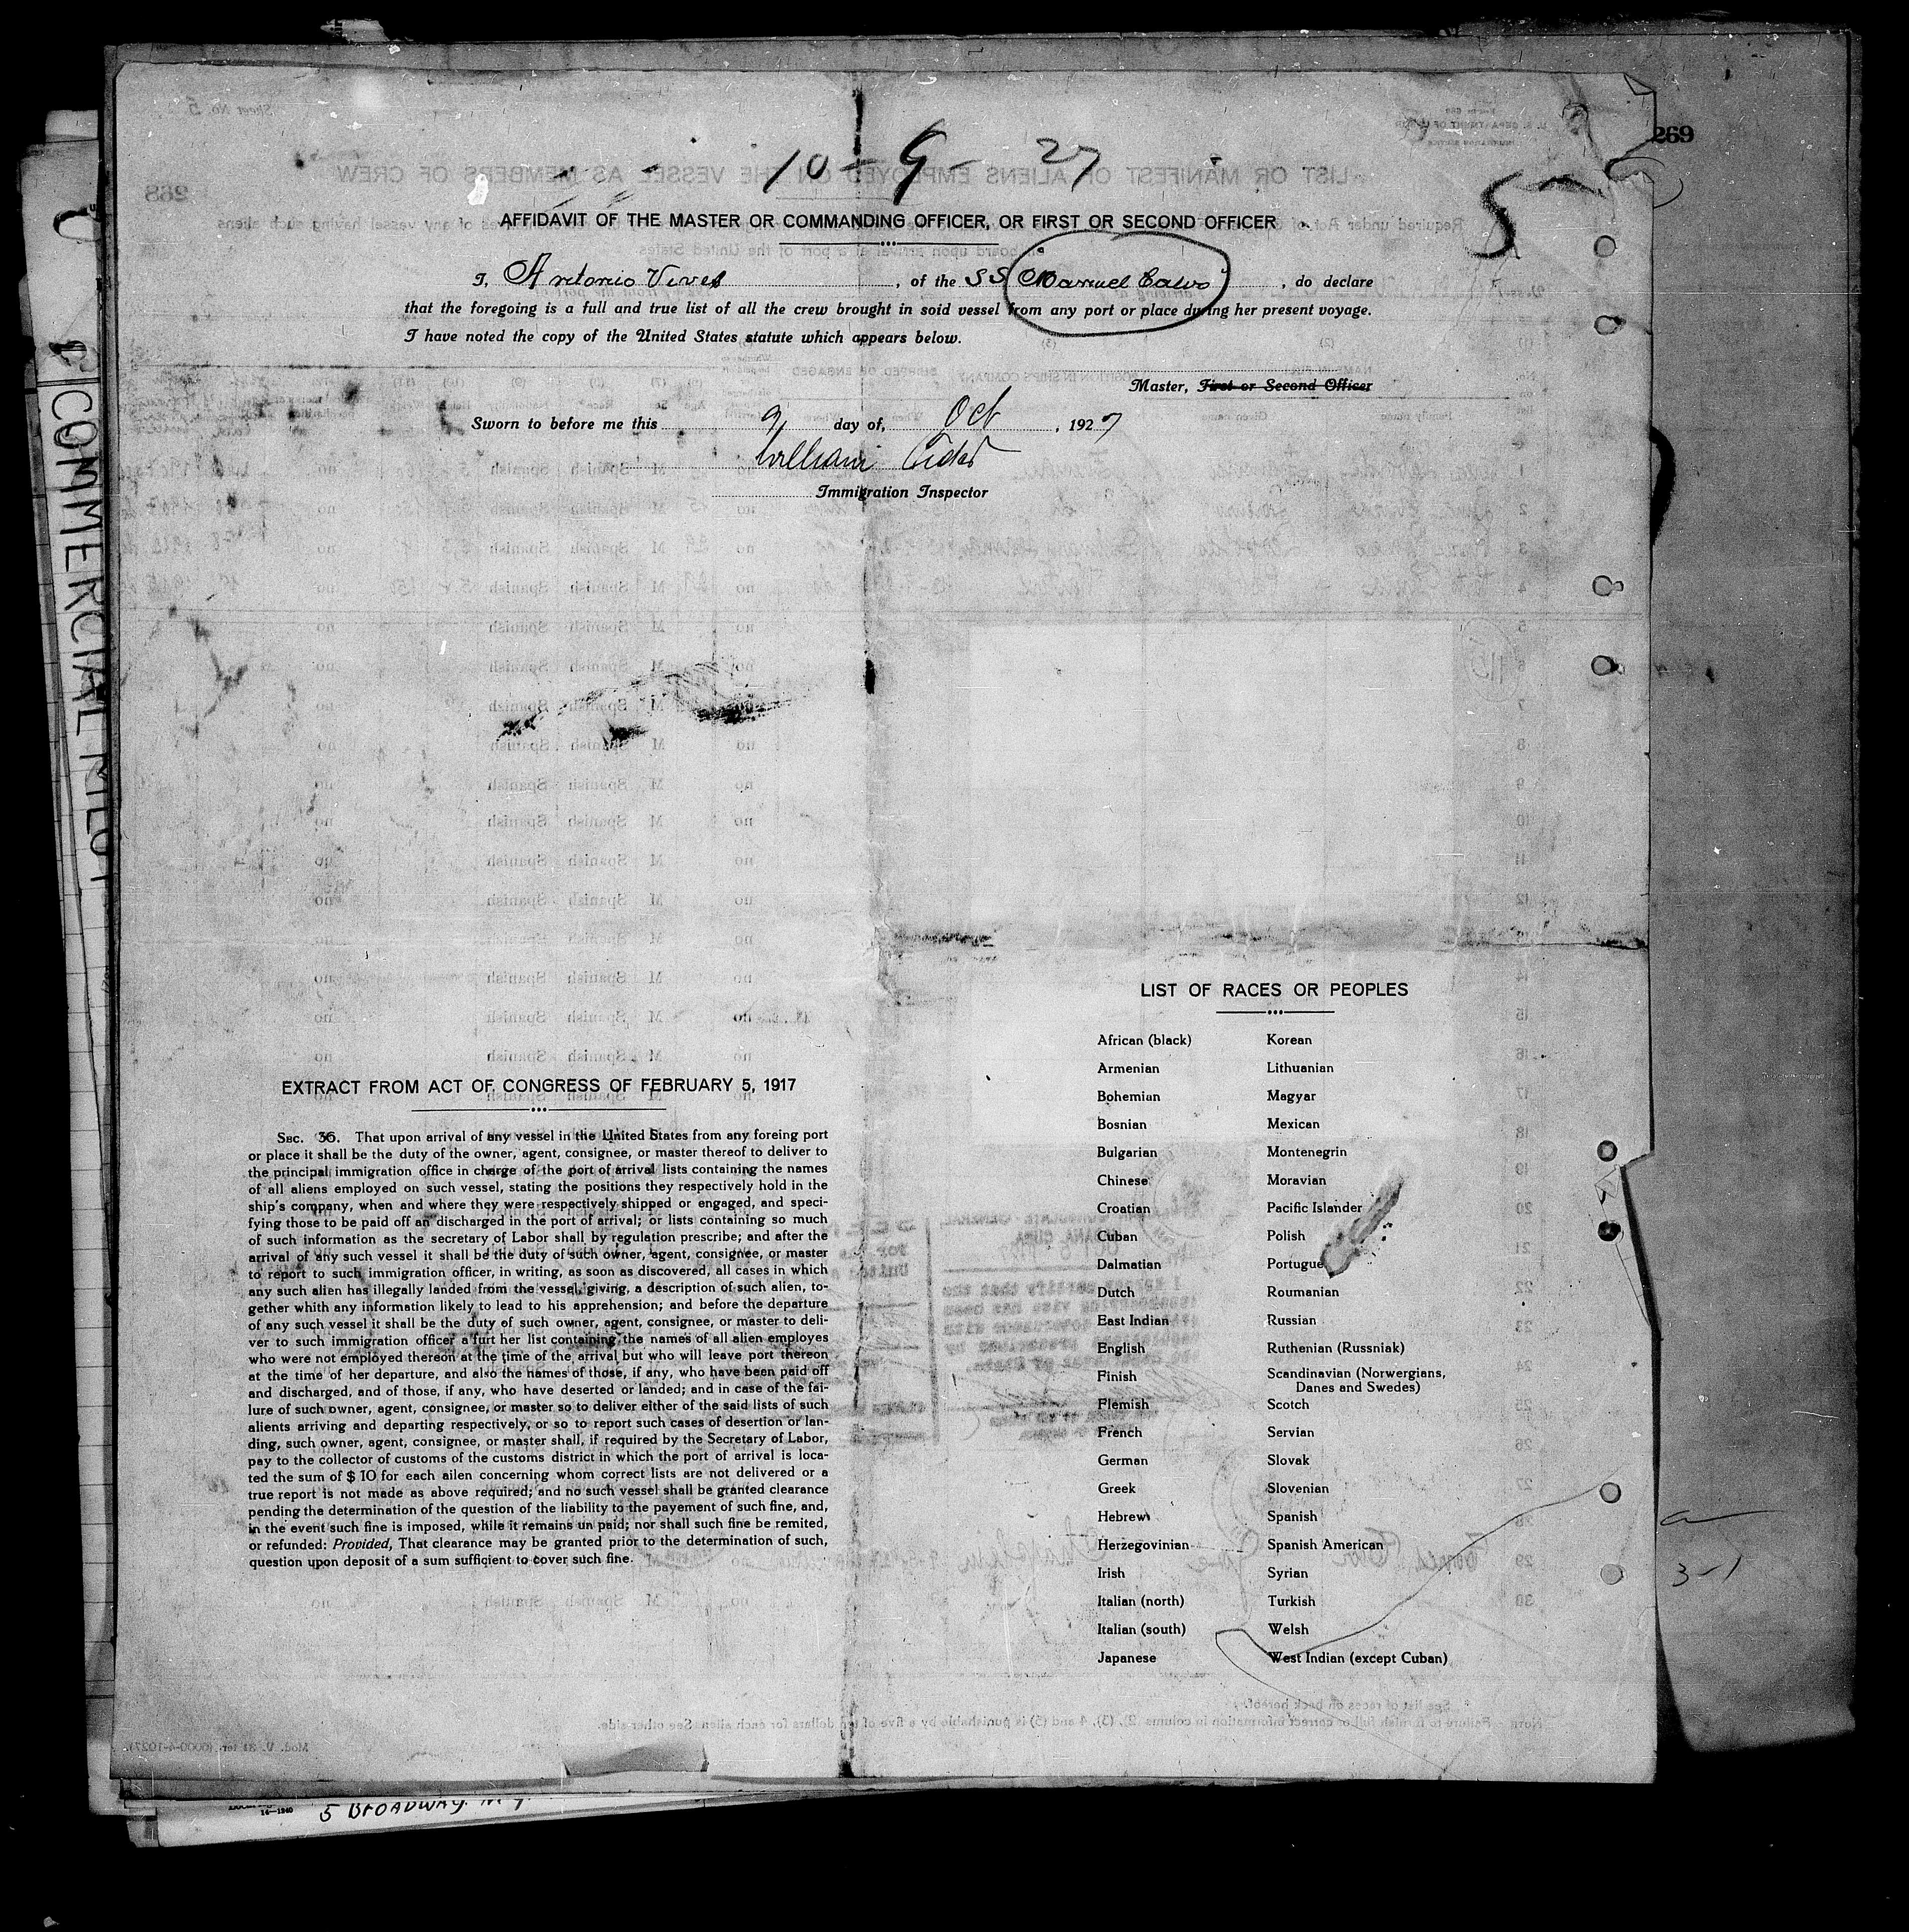 269
10 - 9 - 27
5
AFFIDAVIT OF THE MASTER OR COMMANDING OFFICER, OR FIRST OR SECOND OFFICER
I, Antonio Vives, of the SS "Manuel Calvo", do declare
that the foregoing is a full and true list of all the crew brought in soid vessel from any port or place during her present voyage.
I have noted the copy of the United States statute which appears below.
Master, First or Second Officer
Sworn to before me this 9 day of, Oct, 1927
William
Immigration Inspector
COMMERCIAL
LIST OF RACES OR PEOPLES
African (black) Korean
Armenian Lithuanian
Bohemian Magyar
Bosnian Mexican
Bulgarian Montenegrin
Chinese Moravian
Croatian Pacific Islander
Cuban Polish
Dalmatian Portugue
Dutch Roumanian
East Indian Russian
English Ruthenian (Russniak)
Finish Scandinavian (Norwergians,
Danes and Swedes)
Flemish Scotch
French Servian
German Slovak
Greek Slovenian
Hebrew Spanish
Herzegovinian Spanish American
Irish Syrian
Italian (north) Turkish
Italian (south) Welsh
Japanese West Indian (except Cuban)
EXTRACT FROM ACT OF CONGRESS OF FEBRUARY 5, 1917
SEC. 36. That upon arrival of any vessel in the United States from any foreing port
or place it shall be the duty of the owner, agent, consignee, or master thereof to deliver to
the principal immigration office in charge of the port of arrival lists containing the names
of all aliens employed on such vessel, stating the positions they respectively hold in the
ship's company, when and where they were respectively shipped or engaged, and speci-
fying those to be paid off an discharged in the port of arrival; or lists containing so much
of such information as the secretary of Labor shall by regulation prescribe; and after the
arrival of any such vessel it shall be the duty of such owner, agent, consignee, or master
to report to such immigration officer, in writing, as soon as discovered, all cases in which
any such alien has illegally landed from the vessel, giving, a description of such alien, to-
gether whith any information likely to lead to his apprehension; and before the departure
of any such vessel it shall be the duty of such owner, agent, consignee, or master to deli-
ver to such immigration officer a furt her list containing the names of all alien employes
who were not employed thereon at the time of the arrival but who will leave port thereon
at the time of her departure, and also the names of those, if any, who have been paid off
and discharged, and of those, if any, who have deserted or landed; and in case of the fai-
lure of such owner, agent, consignee, or master so to deliver either of the said lists of such
alients arriving and departing respectively, or so to report such cases of desertion or lan-
ding, such owner, agent, consignee, or master shall, if required by the Secretary of Labor,
pay to the collector of customs of the customs district in which the port of arrival is loca-
ted the sum of $ 10 for each ailen concerning whom correct lists are not delivered or a
true report is not made as above required; and no such vessel shall be granted clearance
pending the determination of the question of the liability to the payement of such fine, and,
in the event such fine is imposed, while it remains un paid; nor shall such fine be remited,
or refunded: Provided, That clearance may be granted prior to the determination of such,
question upon deposit of a sum suffizient to cover such fine.
3-1
5 BROADWAY. N.Y.